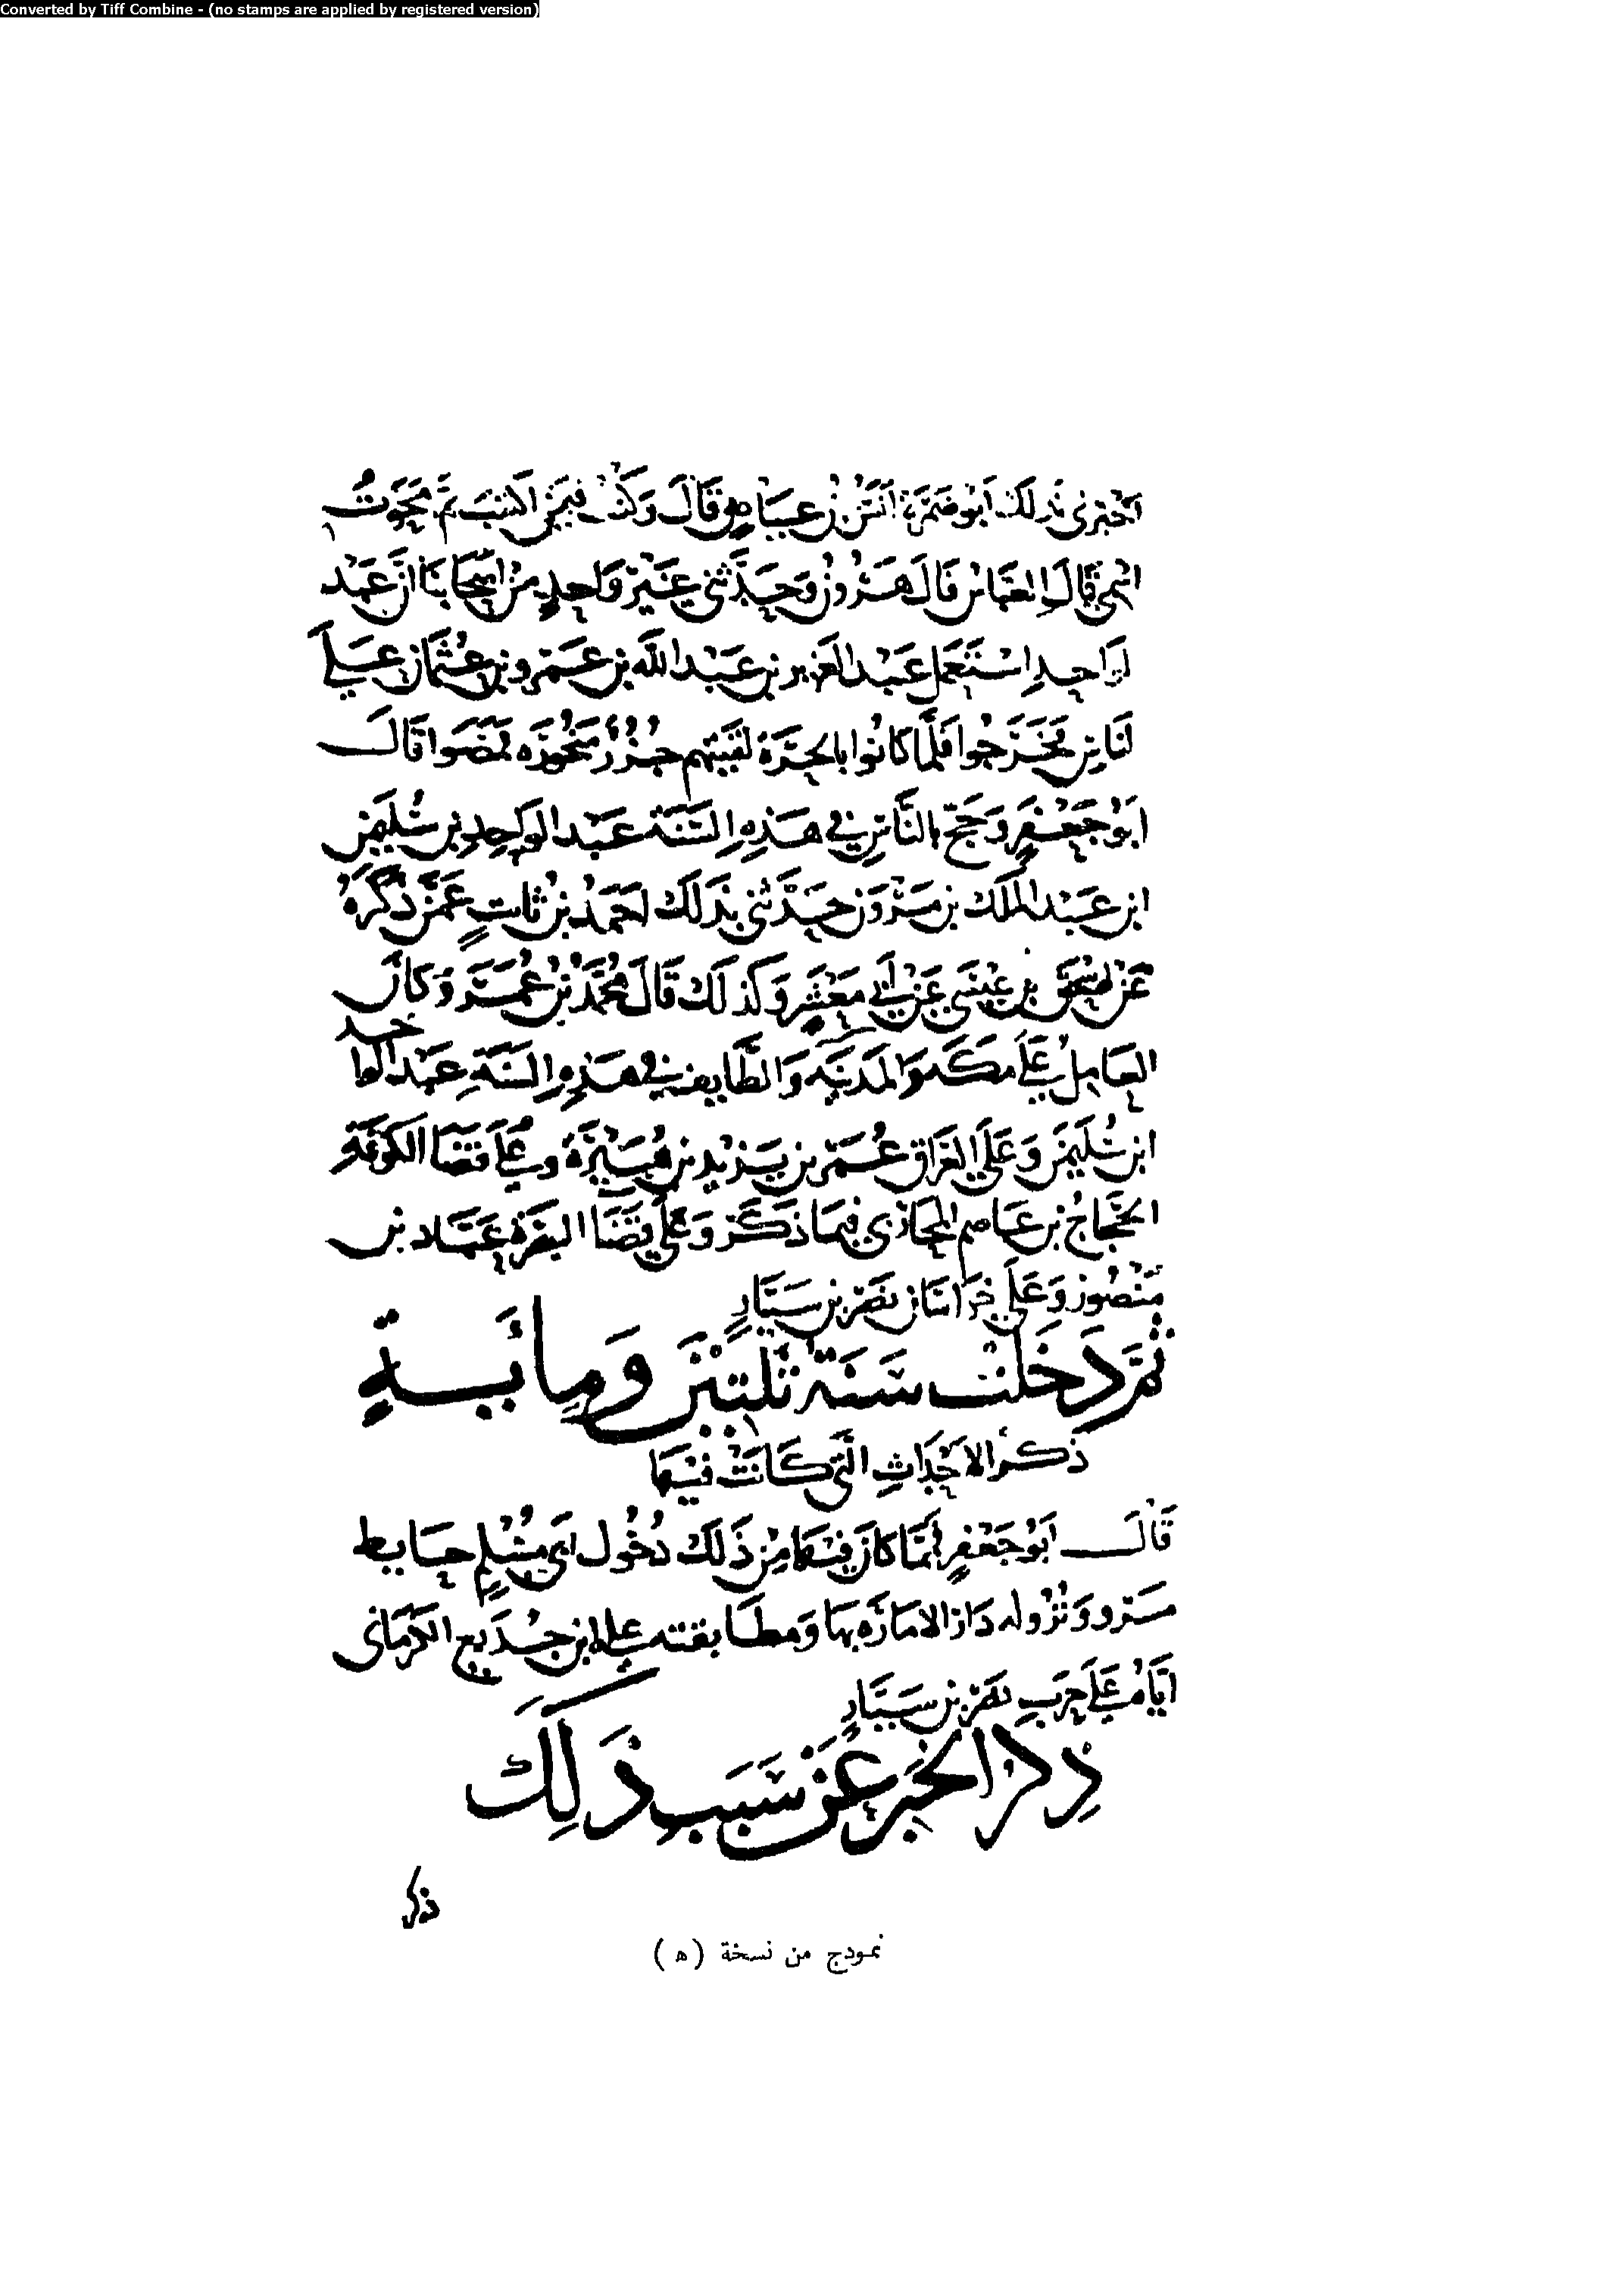 Converted by Tiff Combine - (no stamps are applied by registered version)
اخبرني بذلك ابو ضمرة انس بن عياض قال وكنت فيمن اكتتب ثم محوت
اسمي قال العباس قال هرون وحدثني غير واحد من اصحابنا ان عبد
الواحد استعمل عبد العزيز بن عبد الله بن عمرو بن عثمان على
الناس فخرجوا فلما كانوا بالحرة لقيتهم جزر منحورة فمضوا قال
ابو جعفر وحج بالناس في هذه السنة عبد الواحد بن سليمن
ابن عبد الملك بن مرون حدثني بذلك احمد بن ثابت عمن ذكره
عن اسحق بن عيسى عن ابي معشر وكذلك قال محمد بن عمر وكان
العامل على مكة والمدينة والطايف في هذه السنة عبد الواحد
ابن سليمن وعلى العراق عمر بن يزيد بن هبيرة وعلى قضا الكوفة
الحجاج بن عاصم المحاربي فيما ذكر وعلى قضا البصرة عباد بن
منصور وعلى خراسان نصر بن سيار
ثم دخلت سنة ثلثين ومائة
ذكر الاحداث التي كانت فيها
قال ابو جعفر فمما كان فيها من ذلك دخول ابي مسلم حايط
مرو ونزوله دار الامارة بها ومطابقته علي ابن جديع الكرماني
اياه على حرب نصر بن سيار
ذكر الخبر عن سبب ذلك
ذكر
نموذج من نسخة (ه)